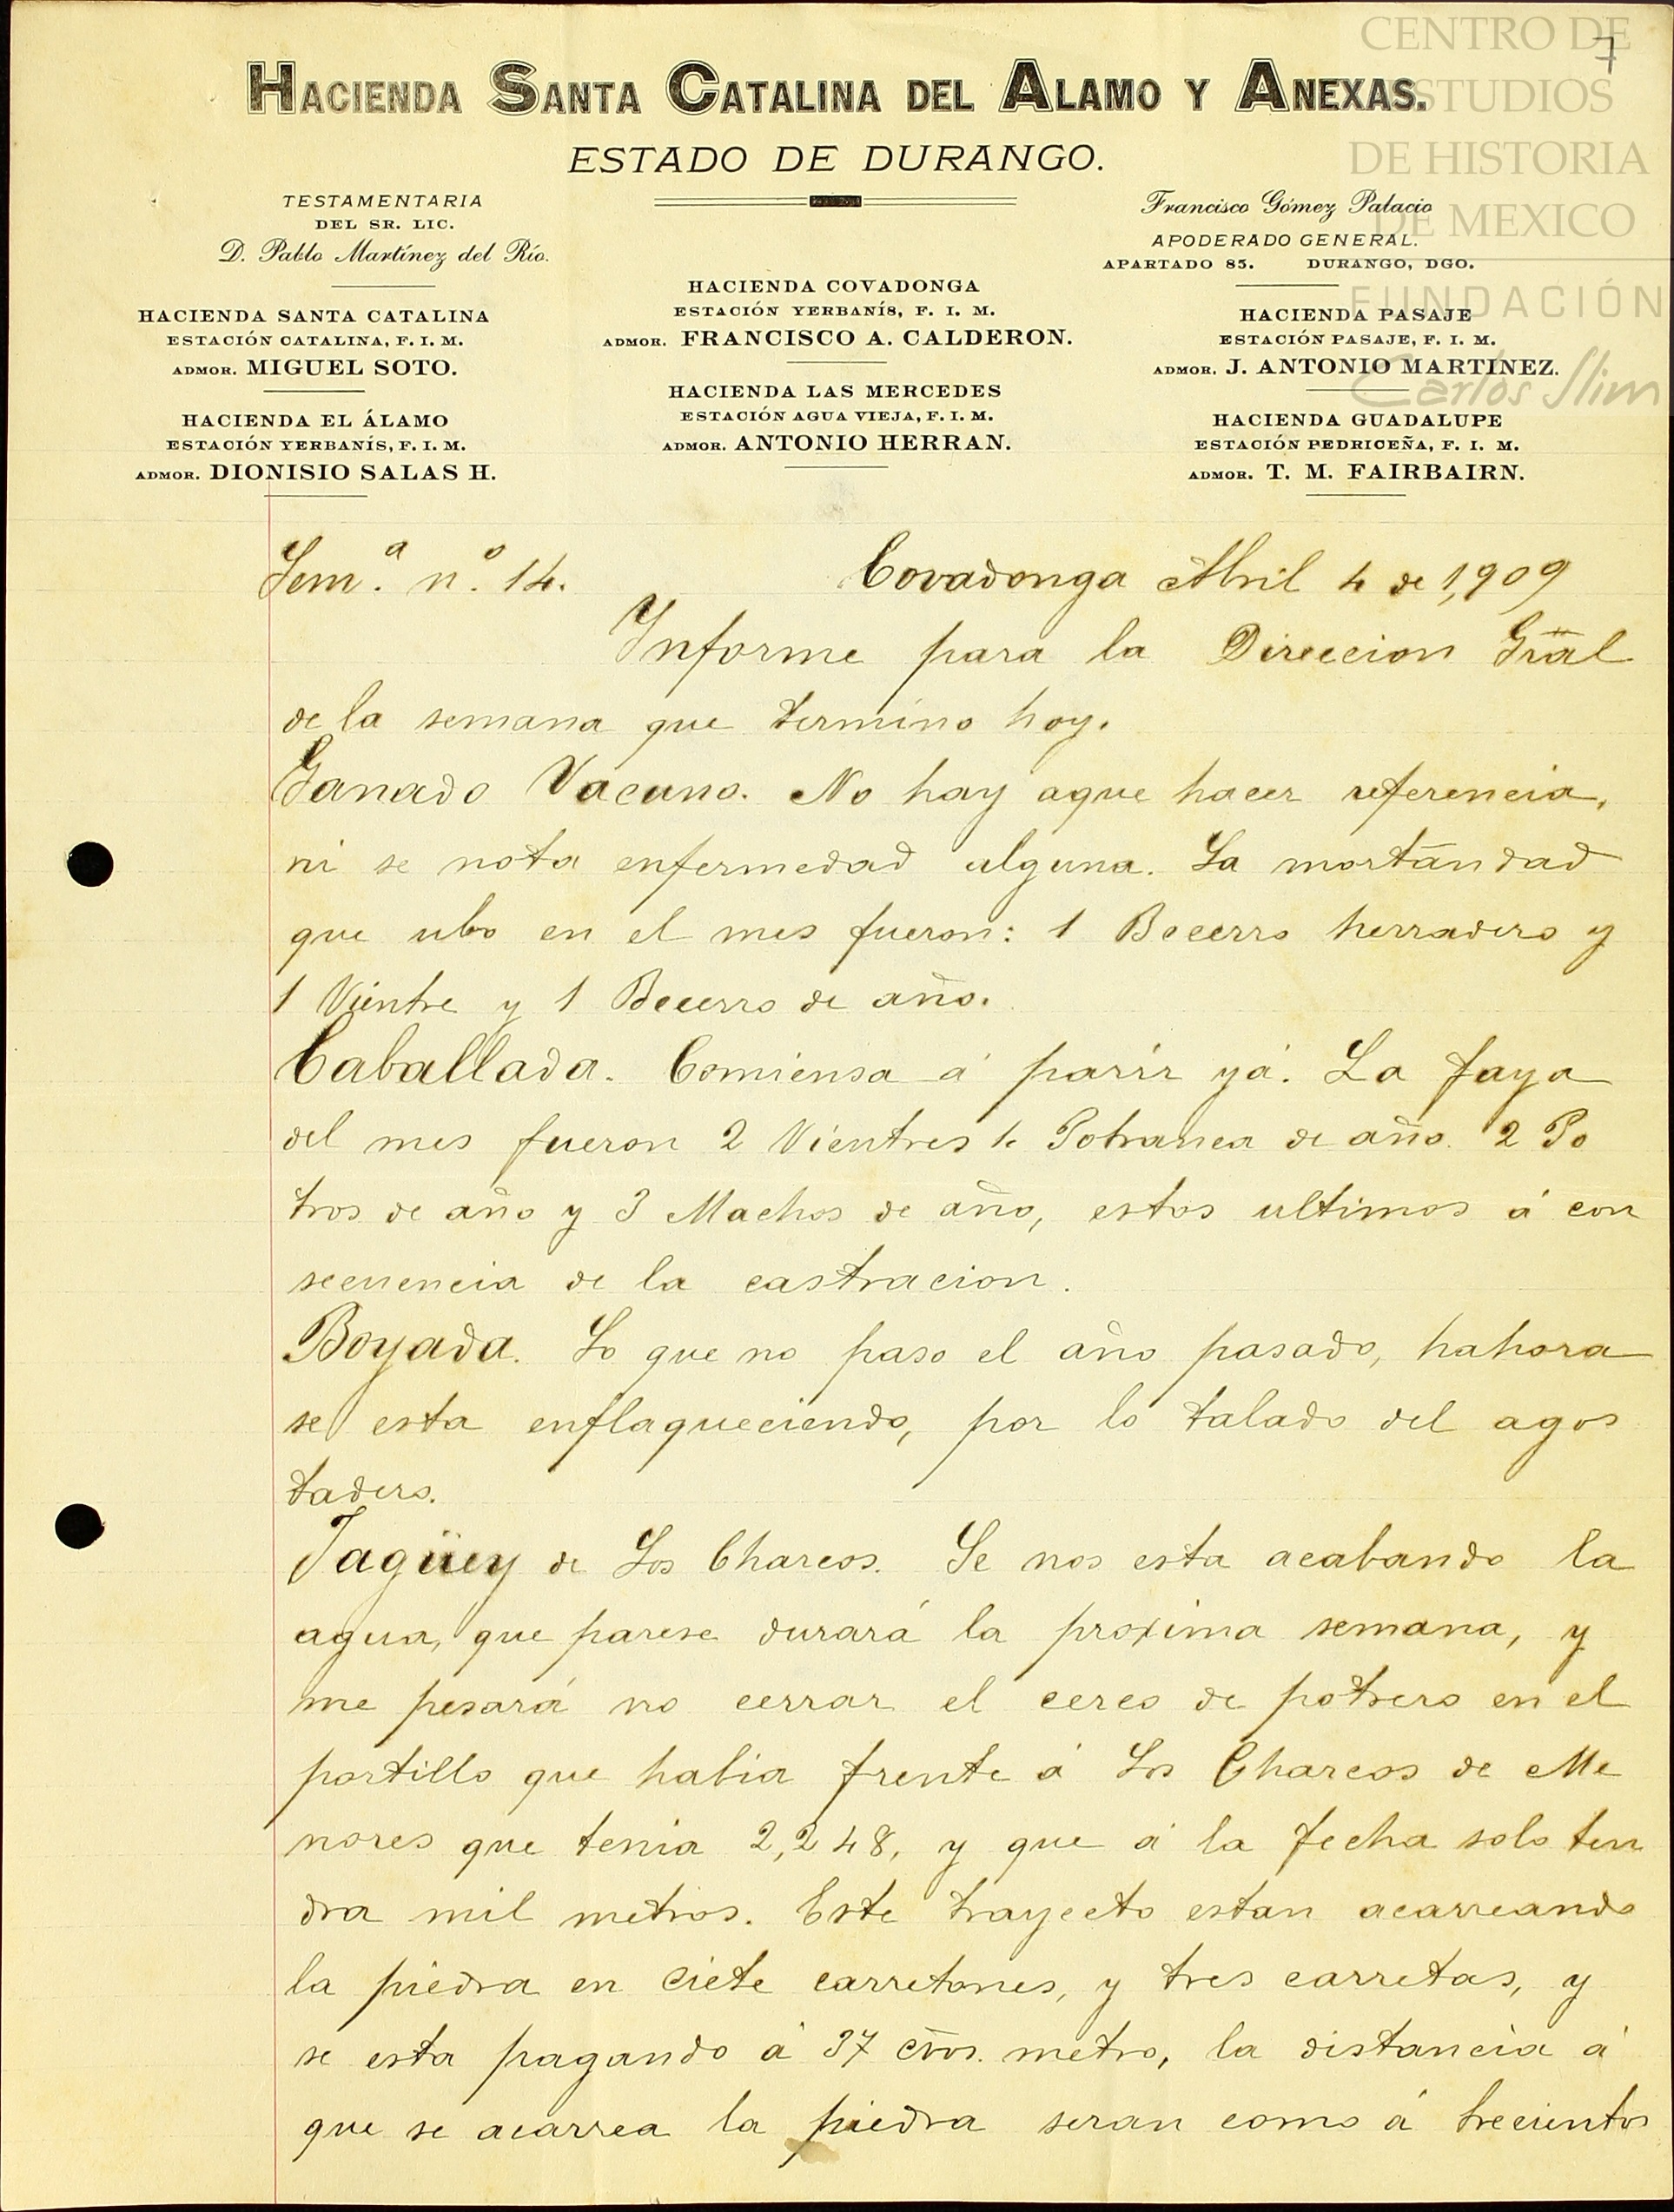 CENTRO DE
ESTUDIOS
DE HISTORIA
DE MEXICO
FUNDACIÓN
Carlos Slim
7
HACIENDA SANTA CATALINA DEL ALAMO Y ANEXAS.
ESTADO DE DURANGO.
TESTAMENTARIA
DEL SR. LIC.
D. Pablo Martínez del Río.
HACIENDA SANTA CATALINA
ESTACIÓN CATALINA, F. I. M.
ADMOR. MIGUEL SOTO.
HACIENDA EL ÁLAMO
ESTACIÓN YERBANÍS, F. I. M.
ADMOR. DIONISIO SALAS H.
HACIENDA COVADONGA
ESTACIÓN YERBANÍS, F. I. M.
ADMOR. FRANCISCO A. CALDERON.
HACIENDA LAS MERCEDES
ESTACIÓN AGUA VIEJA, F. I. M.
ADMOR. ANTONIO HERRAN.
Francisco Gómez Palacio
APODERADO GENERAL.
APARTADO 85. DURANGO, DGO.
HACIENDA PASAJE
ESTACIÓN PASAJE, F. I. M.
ADMOR. J. ANTONIO MARTINEZ.
HACIENDA GUADALUPE
ESTACIÓN PEDRICEÑA, F. I. M.
ADMOR. T. M. FAIRBAIRN.
Sem.ª n.º 14. Covadonga Abril 4 de 1,909
Informe para la Direccion Gral
de la semana que termino hoy.
Ganado Vacuno. No hay aque hacer referencia,
ni se nota enfermedad alguna. La mortandad
que ubo en el mes fueron: 1 Becerro herradero y
1 Vientre y 1 Becerro de año.
Caballada. Comiensa á parir yá. La faya
del mes fueron 2 Vientres 1. Potranca de año. 2 Po
tros de año y 3 Machos de año, estos ultimos á con
secuencia de la castracion.
Boyada. Lo que no paso el año pasado, hahora
se esta enflaqueciendo, por lo talado del agos
tadero.
Tagüey de Los Charcos. Se nos esta acabando la
agua, que parese durará la proxima semana, y
me pesará no cerrar el cerco de potrero en el
portillo que habia frente á Los Charcos de Me
nores que tenia 2,248, y que á la fecha solo ten
dra mil metros. Este trayecto estan acarreando
la piedra en ciete carretones, y tres carretas, y
se esta pagando á 37 cvos. metro, la distancia á
que se acarrea la piedra seran como á trecientos